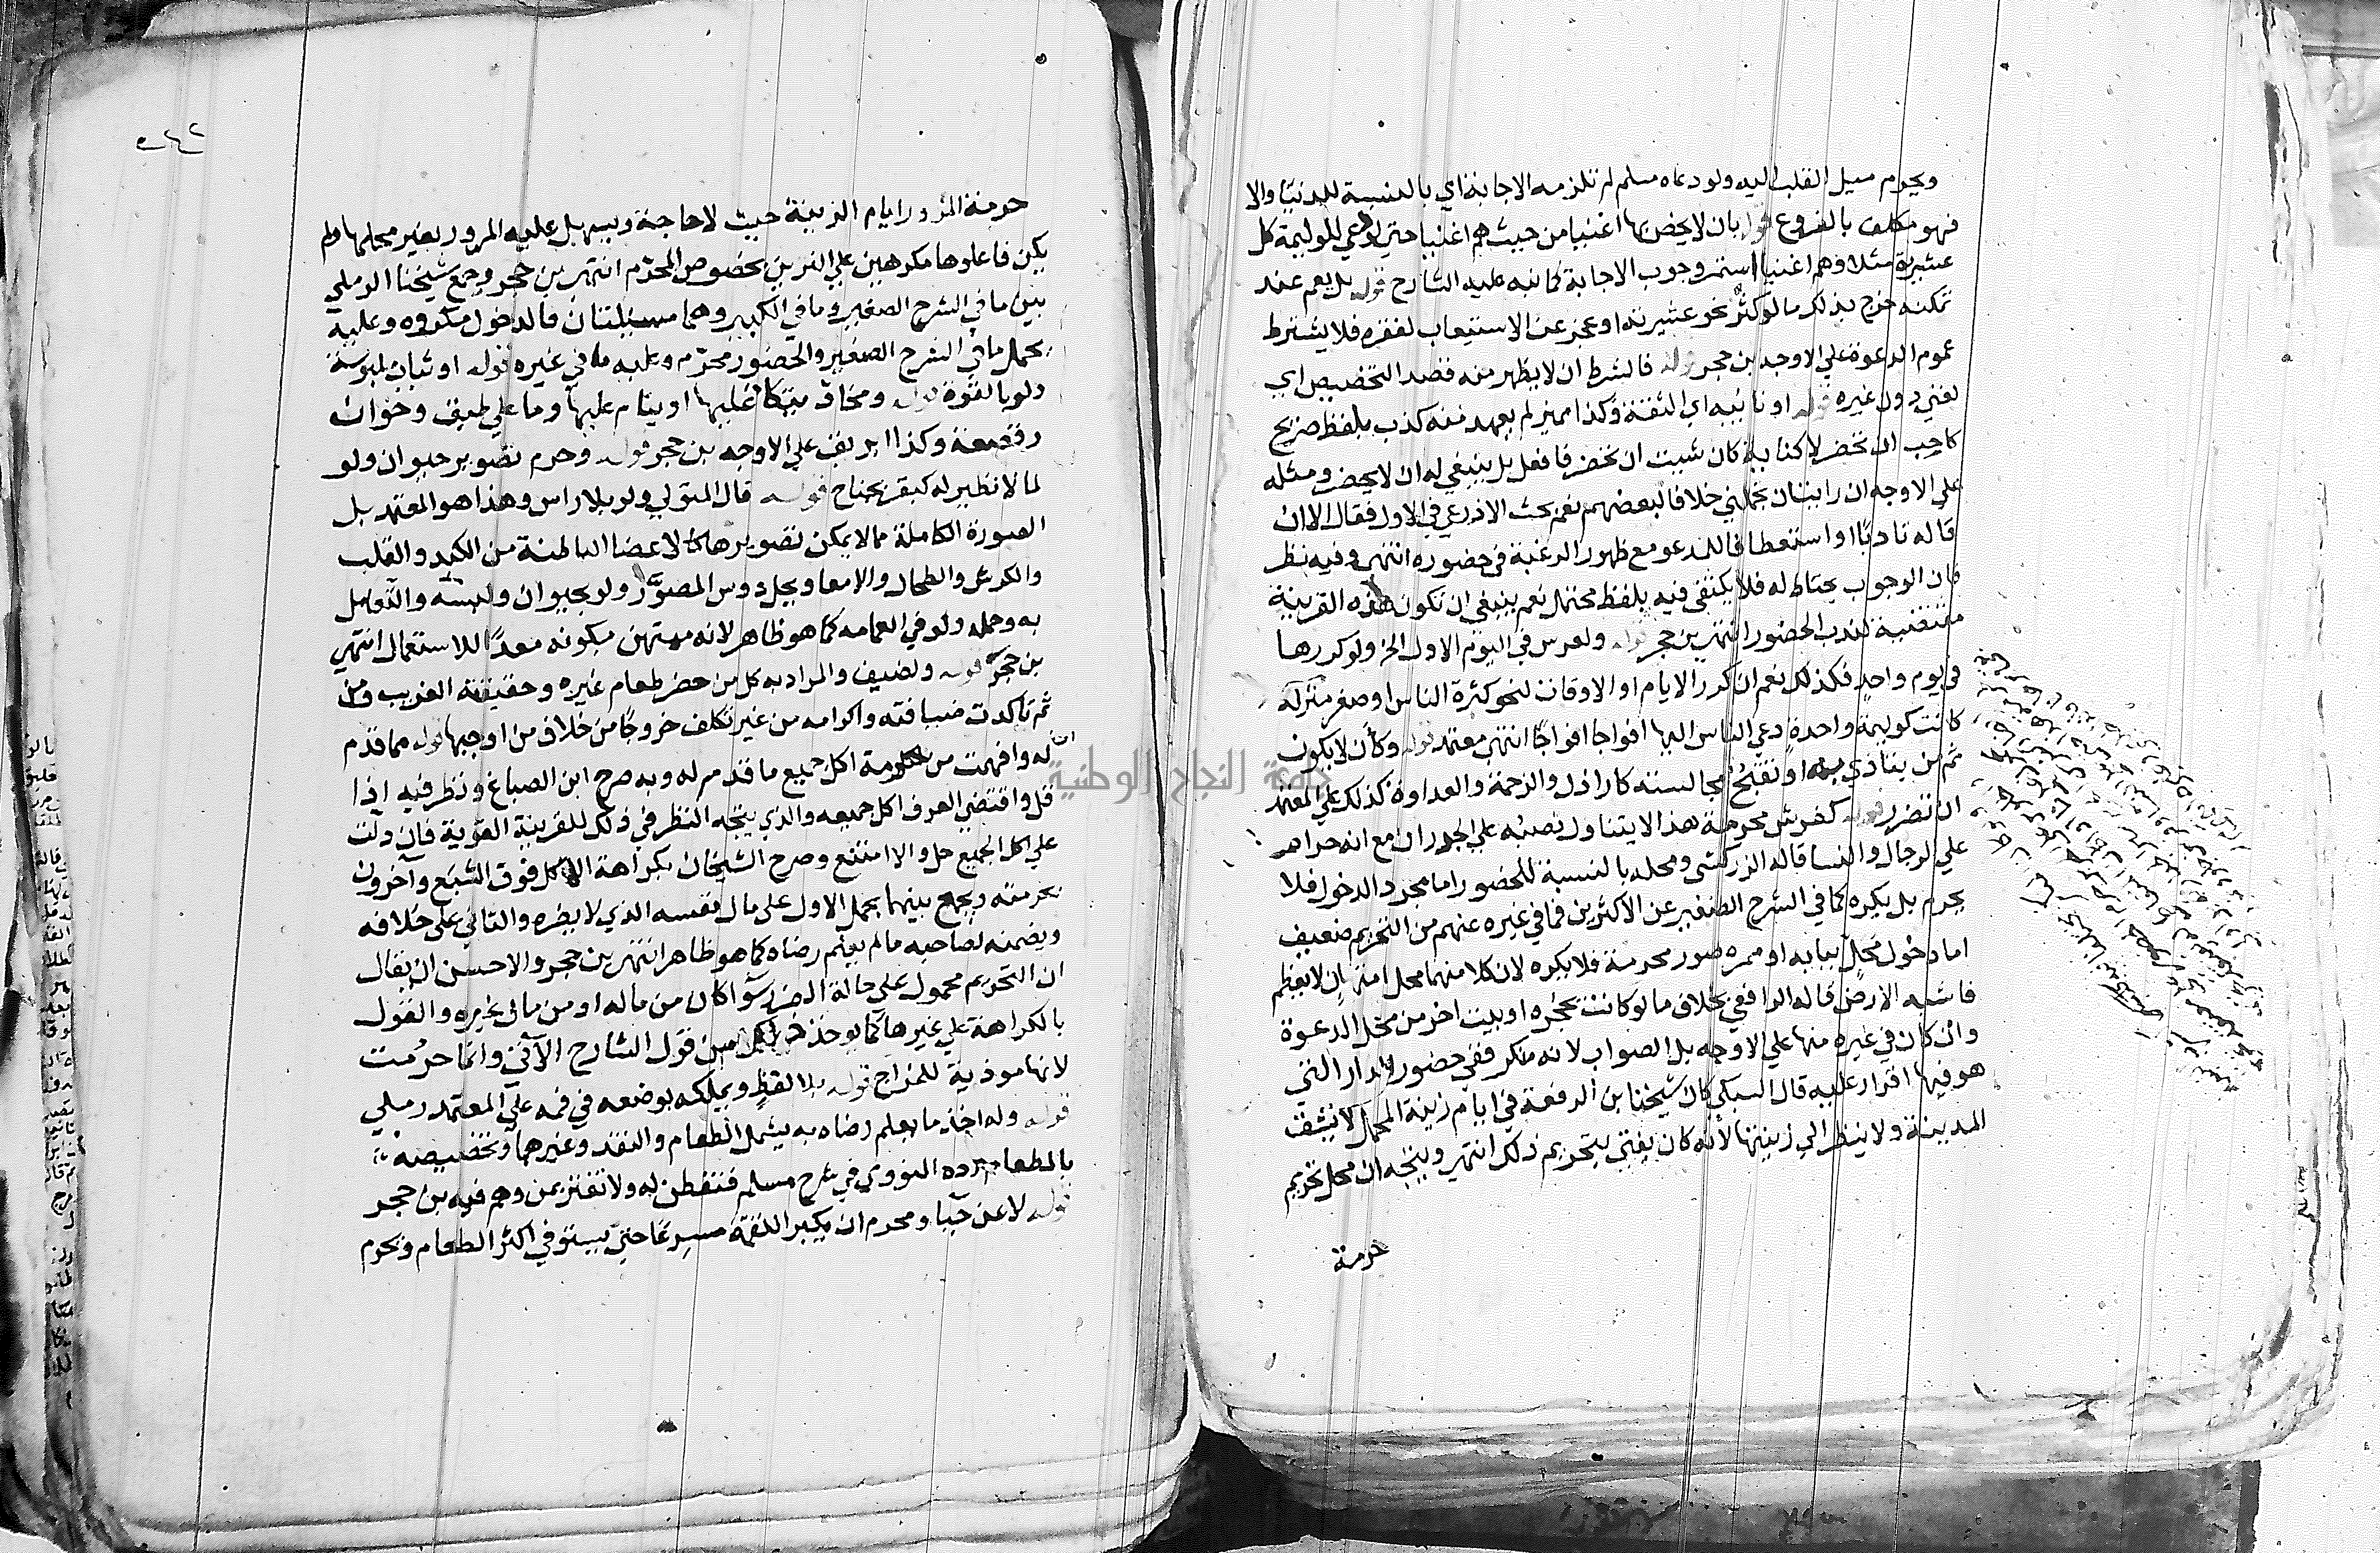 ويحرم ميل القلب اليه ولو دعاه مسلم لم تلزمه الاجابة اي بالنسبة للدنيا والا
فهو مكلف بالفروع قوله بان لا يخص بها اغنيا من حيث هم اغنيا حتي لو دعي للوليمة كل
عشيرته مثلا وهم اغنيا استمر وجوب الاجابة كما نبه عليه الشارح قوله بل يعم عند
تمكنه خرج بذلك ما لو كثر نحو عشيرته او عجز عن الاستيعاب لفقره فلا يشترط
عموم الدعوة علي الاوجه بن حجر قوله فالشرط ان لا يظهر منه قصد التخصيص اي
لغني دون غيره قوله او نائبه اي الثقة وكذا مميز لم يعهد منه كذب بلفظ صريح
كاحب ان تحضر لا كناية كان شيت ان تحضر فافعل بل ينبغي له ان لا يحضر ومثله
علي الاوجه ان رايت ان تجملني خلافا لبعضهم نعم بحث الاذرعي في الاول فقال الا ان
قاله تادبا او استعطافا للمدعو مع ظهور الرغبة في حضوره انتهي وفيه نظر
فان الوجوب يحتاط له فلا يكتفي فيه بلفظ محتمل نعم ينبغي ان تكون هذه القرينة
مقتضية لندب الحضور انتهي بن حجر قوله ولعرس في اليوم الاول الخ ولو كررها
في يوم واحد فكذلك نعم ان كرر الايام او الاوقات لنحو كثرة الناس او صغر منزله
كانت كوليمة واحدة دعي الناس اليها افواجا افواجا انتهي معتمد قوله وكأن لا يكون
ثم من يتاذي به او تقبح مجالسته كاراذل والزحمة والعداوة كذلك علي المعتمد
ان تضرر قوله كفرش محرمة هذا لا يتناول نصبه علي الجدران مع انه حرام
علي الرجال والنسا قاله الزركشي ومحله بالنسبة للحضور اما مجرد الدخول فلا
يحرم بل يكره كما في الشرح الصغير عن الاكثرين فما في غيره عنهم من التحريم ضعيف
اما دخول محل ببابه او ممره صور محرمة فلا يكره لان كلا منهما محل امتهان لا يعظم
فاشبه الارض قاله الرافعي بخلاف ما لو كانت بحجره او بيت اخر من محل الدعوة
وان كان في غيره منها علي الاوجه بل الصواب لانه منكر ففي حضور الدار التي
هو فيها اقرار عليه قال السبكي كان شيخنا بن الرفعة في ايام زينة المحمل لا يشق
المدينة ولا ينظر الي زينتها لأنه كان يفتي بتحريم ذلك انتهي ويتجه ان محل تحريم
حرمة
٥٤٢
حرمة المرور ايام الزينة حيث لا حاجة ويسهل عليه المرور بغير محلها ولم
يكن فاعلوها مكرهين علي التزيين بخصوص المحرم انتهي بن حجر وجمع شيخنا الرملي
بين ما في الشرح الصغير وما في الكبير وهما مسئلتان فالدخول مكروه وعليه
يحمل ما في الشرح الصغير والحضور محرم وعليه ما في غيره قوله او ثياب ملبوسة
ولو بالقوة قوله ومخاد يتكا عليها او ينام عليها وما علي طبق وخوان
وقصعة وكذا ابريق علي الاوجه بن حجر قوله وحرم تصوير حيوان ولو
لما لا نظير له كبقر بجناح قوله قال المتولي ولو بلا راس وهذا هو المعتمد بل
الصورة الكاملة مما لا يمكن تصويرها كالاعضا الباطنة من الكبد والقلب
والكرش والطحال والامعا ويحل دوس المصور ولو بحيوان ولبسه والتعامل
به وحمله ولو في العمامه كما هو ظاهر لانه ممتهن بكونه معدا للاستعمال انتهي
بن حجر قوله ولضيف والمراد به كل من حضر طعام غيره وحقيقته الغريب ومن
ثم تاكدت ضيافته واكرامه من غير تكلف خروجا من خلاف من اوجبها قوله مما قدم
له وافهمت من حرمة اكل جميع ما قدم له وبه صرح ابن الصباغ ونظر فيه اذا
قل واقتضي العرف اكل جميعه والذي يتجه النظر في ذلك للقرينة القوية فان دلت
علي اكل الجميع حل والا امتنع وصرح الشيخان بكراهة الاكل فوق الشبع وآخرون
بحرمته ويجمع بينهما بحمل الاول علي مال نفسه الذي لا يضره والثاني علي خلافه
ويضمنه لصاحبه ما لم يعلم رضاه كما هو ظاهر انتهي بن حجر والاحسن ان يقال
ان التحريم محمول علي حالة الضرر سوا كان من ماله او من مال غيره والقول
بالكراهة علي غيرها كما يوخذ من قول الشارح الآتي وانما حرمت
لانها موذية للمزاج قوله بلا لفظ ويملكه بوضعه في فمه علي المعتمد رملي
قوله وله اخذ ما يعلم رضاه به يشمل الطعام والنقد وغيرهما وتخصيصه
بالطعام رده النووي في شرح مسلم فتفطن له ولا تغتر بمن وهم فيه بن حجر
قوله لا عن حيا ومحرم ان يكبر اللقمة مسرعا حتي يستوفي اكثر الطعام ويحرم
جامعة النجاح الوطنية